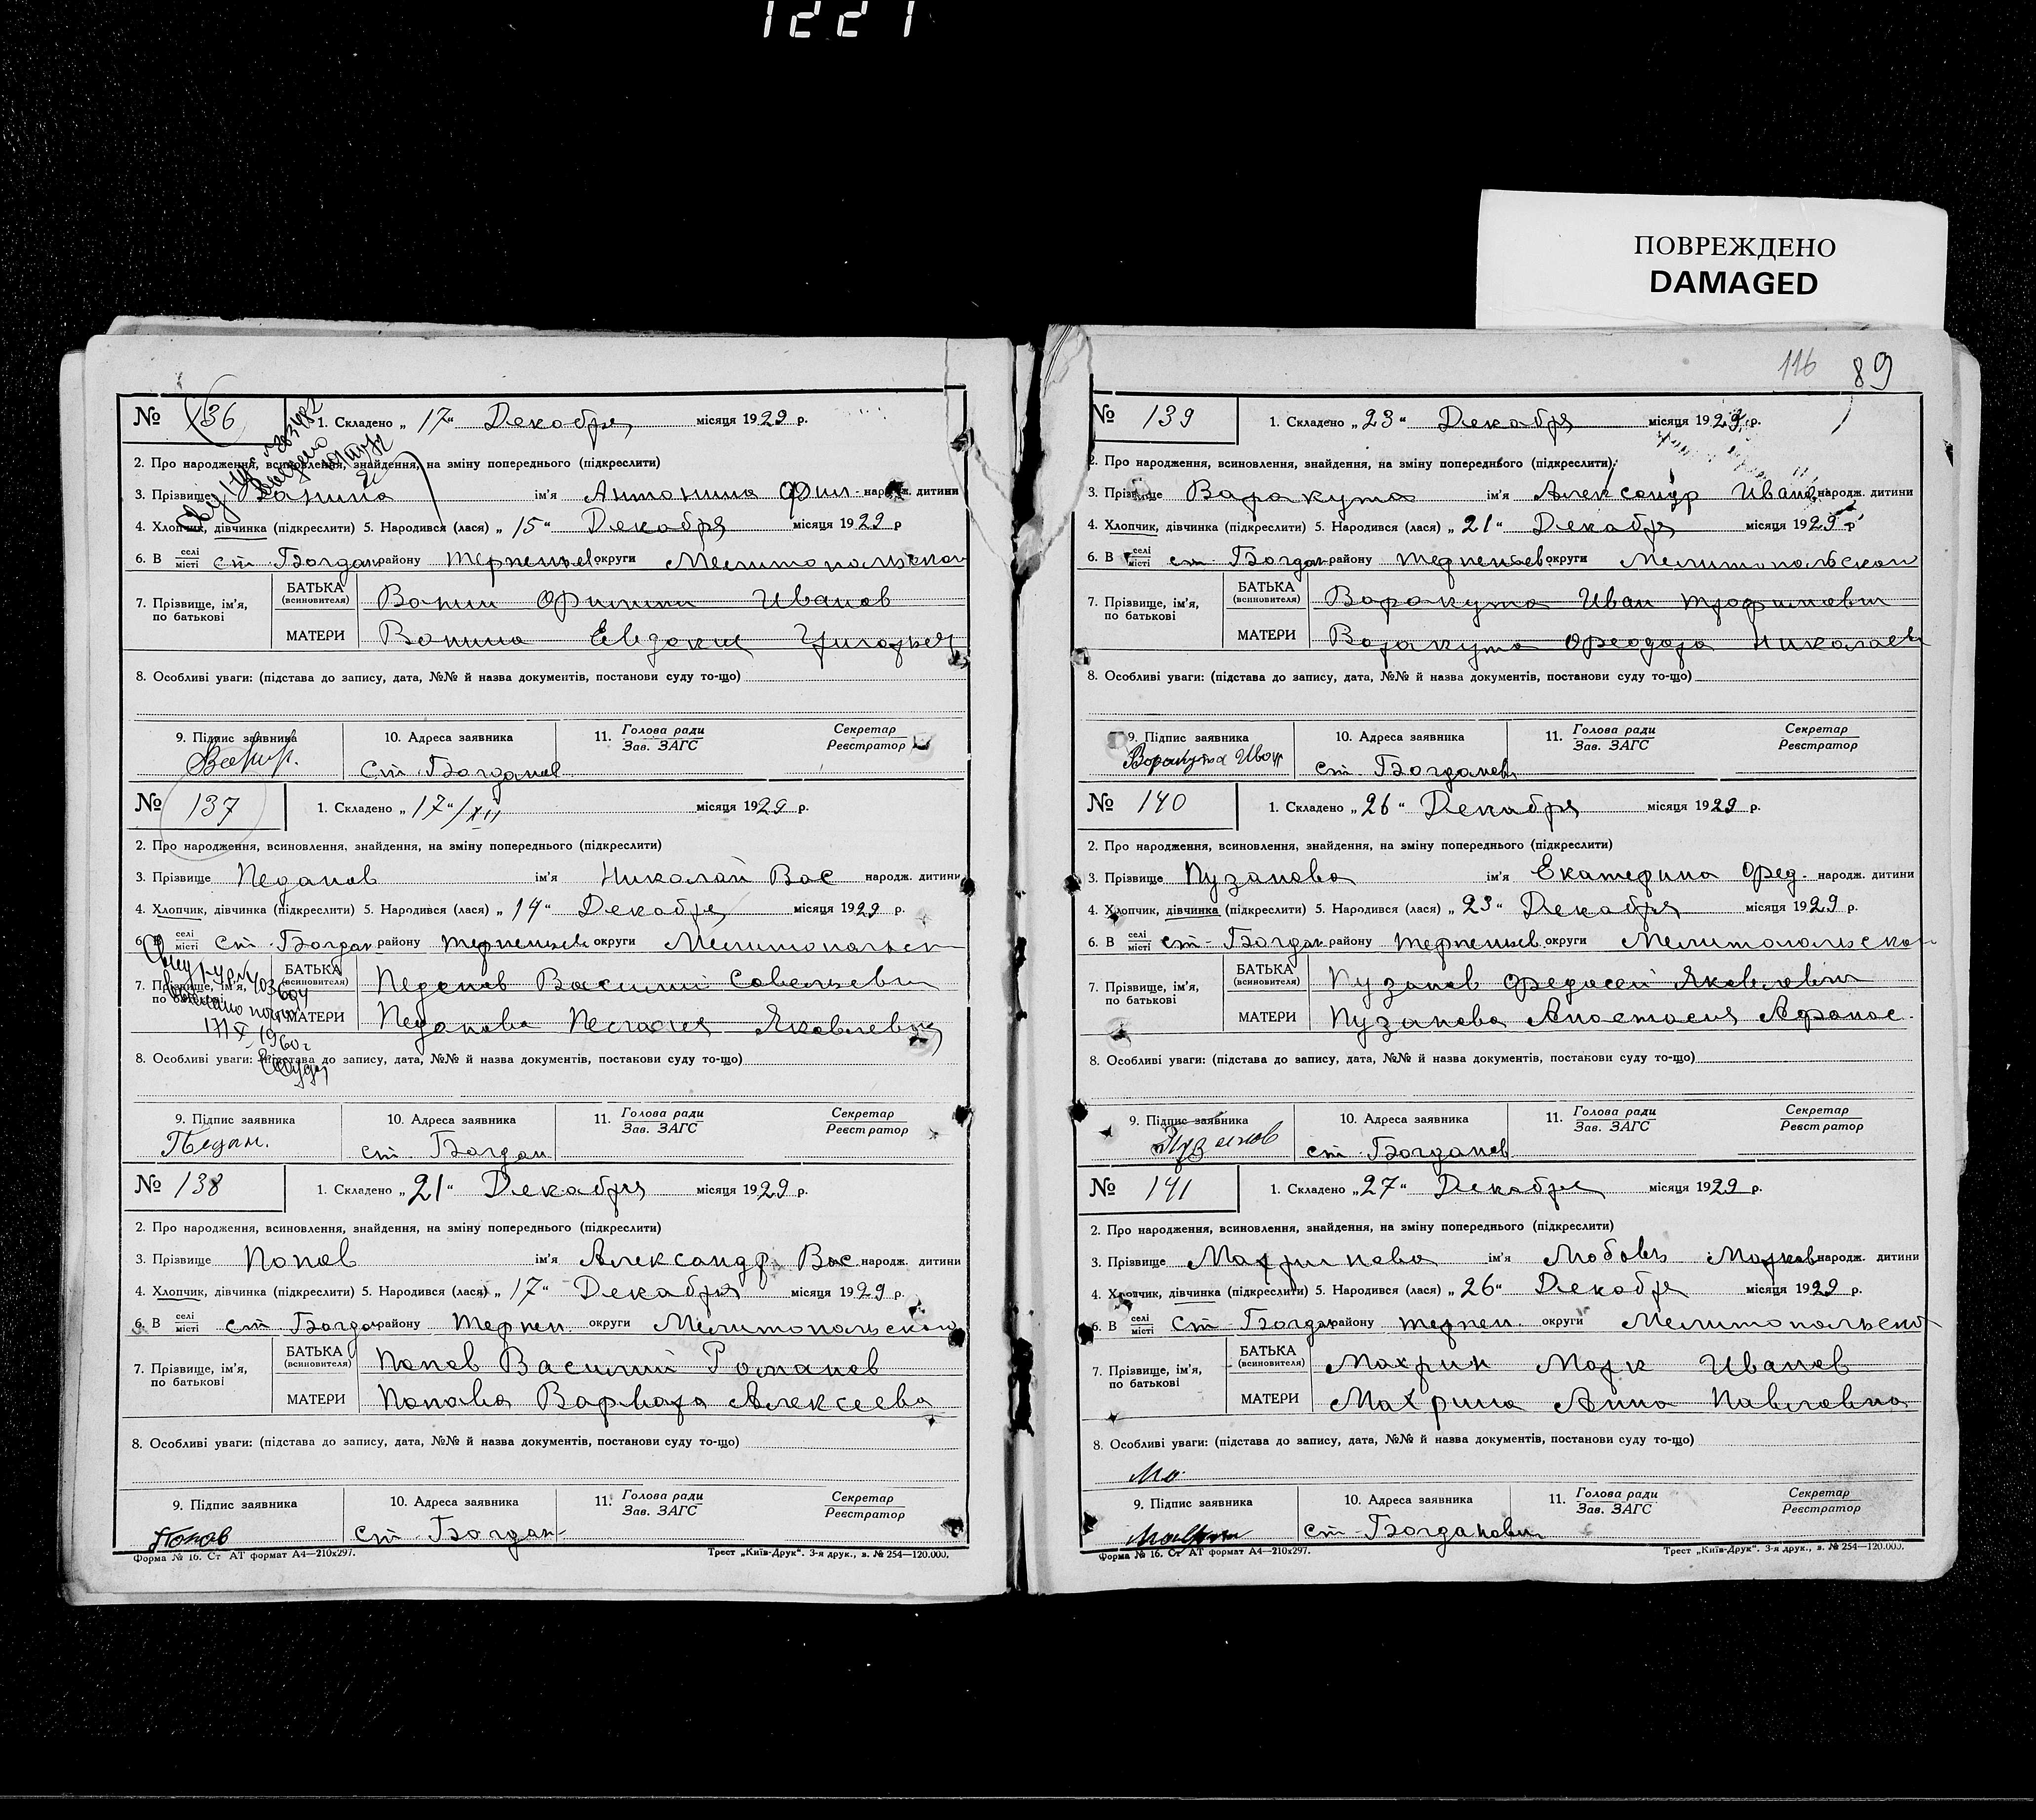 1221
ПОВРЕЖДЕНО
DAMAGED
№ 136
1. Складено „ 17 “ Декабря місяця 1929 р.
2. Про народження, всиновлення, знайдення, на зміну попереднього (підкреслити)
3. Прізвище Ванина ім'я Антонина Фил. народж. дитини
4. Хлопчик, дівчинка (підкреслити) 5. Народився (лася) „ 15 “ Декабря місяця 1929 р
6. В селі місті ст. Богдан району Терпеньев округи Мелитопольской
7. Прізвище, ім'я, по батькові
БАТЬКА (всиновителя) Ванин Филипп Иванов
МАТЕРИ Ванина Евдокия Григорьев
8. Особливі уваги: (підстава до запису, дата, №№ й назва документів, постанови суду то-що)
9. Підпис заявника 10. Адреса заявника 11. Голова ради Зав. ЗАГС Секретар Реєстратор
Ванин. ст. Богданов
№ 137
1. Складено „ 17 “/XII місяця 1929 р.
2. Про народження, всиновлення, знайдення, на зміну попереднього (підкреслити)
3. Прізвище Педанов ім'я Николай Вас народж. дитини
4. Хлопчик, дівчинка (підкреслити) 5. Народився (лася) „ 14 “ Декабря місяця 1929 р.
6. В селі місті ст. Богдан району Терпеньев округи Мелитопольск
7. Прізвище, ім'я, по батькові
БАТЬКА (всиновителя) Педанов Василий Савельевич
МАТЕРИ Педанова Яковлевна
1960 г
8. Особливі уваги: (підстава до запису, дата, №№ й назва документів, постакови суду то-що)
9. Підпис заявника 10. Адреса заявника 11. Голова ради Зав. ЗАГС Секретар Реєстратор
Педан. ст. Богдан
№ 138
1. Складено „ 21 “ Декабря місяця 1929 р.
2. Про народження, всиновлення, знайдення, на зміну попереднього (підкреслити)
3. Прізвище Попов ім'я Александр Вас народж. дитини
4. Хлопчик, дівчинка (підкреслити) 5. Народився (лася) „ 17 “ Декабря місяця 1929 р.
6. В селі місті ст Богдан району Терпен. округи Мелитопольской
7. Прізвище, ім'я, по батькові
БАТЬКА (всиновителя) Попов Василий Романов
МАТЕРИ Попова Варвара Алексеева
8. Особливі уваги: (підстава до запису, дата, №№ й назва документів, постанови суду то-що)
9. Підпис заявника 10. Адреса заявника 11. Голова ради Зав. ЗАГС Секретар Реєстратор
Попов ст. Богдан
Форма № 16. Ст АТ формат А4—210х297. Трест „Київ-Друк“. 3-я друк., з. № 254—120.000.
116 89
№ 139
1. Складено „ 23 “ Декабря місяця 1929 р.
2. Про народження, всиновлення, знайдення, на зміну попереднього (підкреслити)
3. Прізвище Варакута ім'я Александр Иванов народж. дитини
4. Хлопчик, дівчинка (підкреслити) 5. Народився (лася) „ 21 “ Декабря місяця 1929 р
6. В селі місті ст. Богдан району Терпеньев округи Мелитопольской
7. Прізвище, ім'я, по батькові
БАТЬКА (всиновителя) Варакута Иван Трофимович
МАТЕРИ Варакута Феодора Николаев
8. Особливі уваги: (підстава до запису, дата, №№ й назва документів, постанови суду то-що)
9. Підпис заявника 10. Адреса заявника 11. Голова ради Зав. ЗАГС Секретар Реєстратор
Воракута Иван ст. Богданов
№ 140
1. Складено „ 26 “ Декабря місяця 1929 р.
2. Про народження, всиновлення, знайдення, на зміну попереднього (підкреслити)
3. Прізвище Пузанова ім'я Екатерина Фед. народж. дитини
4. Хлопчик, дівчинка (підкреслити) 5. Народився (лася) „ 23 “ Декабря місяця 1929 р.
6. В селі місті ст. Богдан району Терпеньев. округи Мелитопольской
7. Прізвище, ім'я, по батькові
БАТЬКА (всиновителя) Пузанов Федосей Яковлевич
МАТЕРИ Пузанова Анастасия Афанас.
8. Особливі уваги: (підстава до запису, дата, №№ й назва документів, постанови суду то-що)
9. Підпис заявника 10. Адреса заявника 11. Голова ради Зав. ЗАГС Секретар Реєстратор
Пузанов ст. Богданов
№ 141
1. Складено „ 27 “ Декабря місяця 1929 р.
2. Про народження, всиновлення, знайдення, на зміну попереднього (підкреслити)
3. Прізвище ім'я Любовь Марков народж. дитини
4. Хлопчик, дівчинка (підкреслити) 5. Народився (лася) „ 26 “ Декабря місяця 1929 р.
6. В селі місті ст Богдан району Терпен. округи Мелитопольской
7. Прізвище, ім'я, по батькові
БАТЬКА (всиновителя) Махрин Марк Иванов
МАТЕРИ Махрина Анна Павловна
8. Особливі уваги: (підстава до запису, дата, №№ й назва документів, постанови суду то-що)
Ма
9. Підпис заявника 10. Адреса заявника 11. Голова ради Зав. ЗАГС Секретар Реєстратор
ст. Богдановки
Форма № 16. Ст АТ формат А4—210х297. Трест „Київ-Друк“. 3-я друк., з. № 254—120.000.